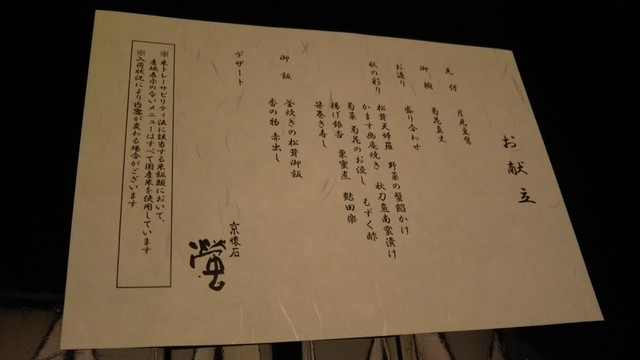 お献立
先付　月見豆腐
御椀　菊花真丈
お造り　盛り合わせ
秋の彩り　松茸天婦羅　野菜の蟹餡かけ
かます幽庵焼き　秋刀魚南蛮漬け
菊菜 菊花のお浸し　もずく酢
揚げ銀杏　栗蜜煮　麩田楽
笹巻き寿し
御飯　釜炊きの松茸御飯
香の物 赤出し
デザート
京懐石
螢
※米トレーサビリティ法に該当する米飯類において、
産地表示のないメニューはすべて国産米を使用しています
※入荷状況により内容が変わる場合がございます